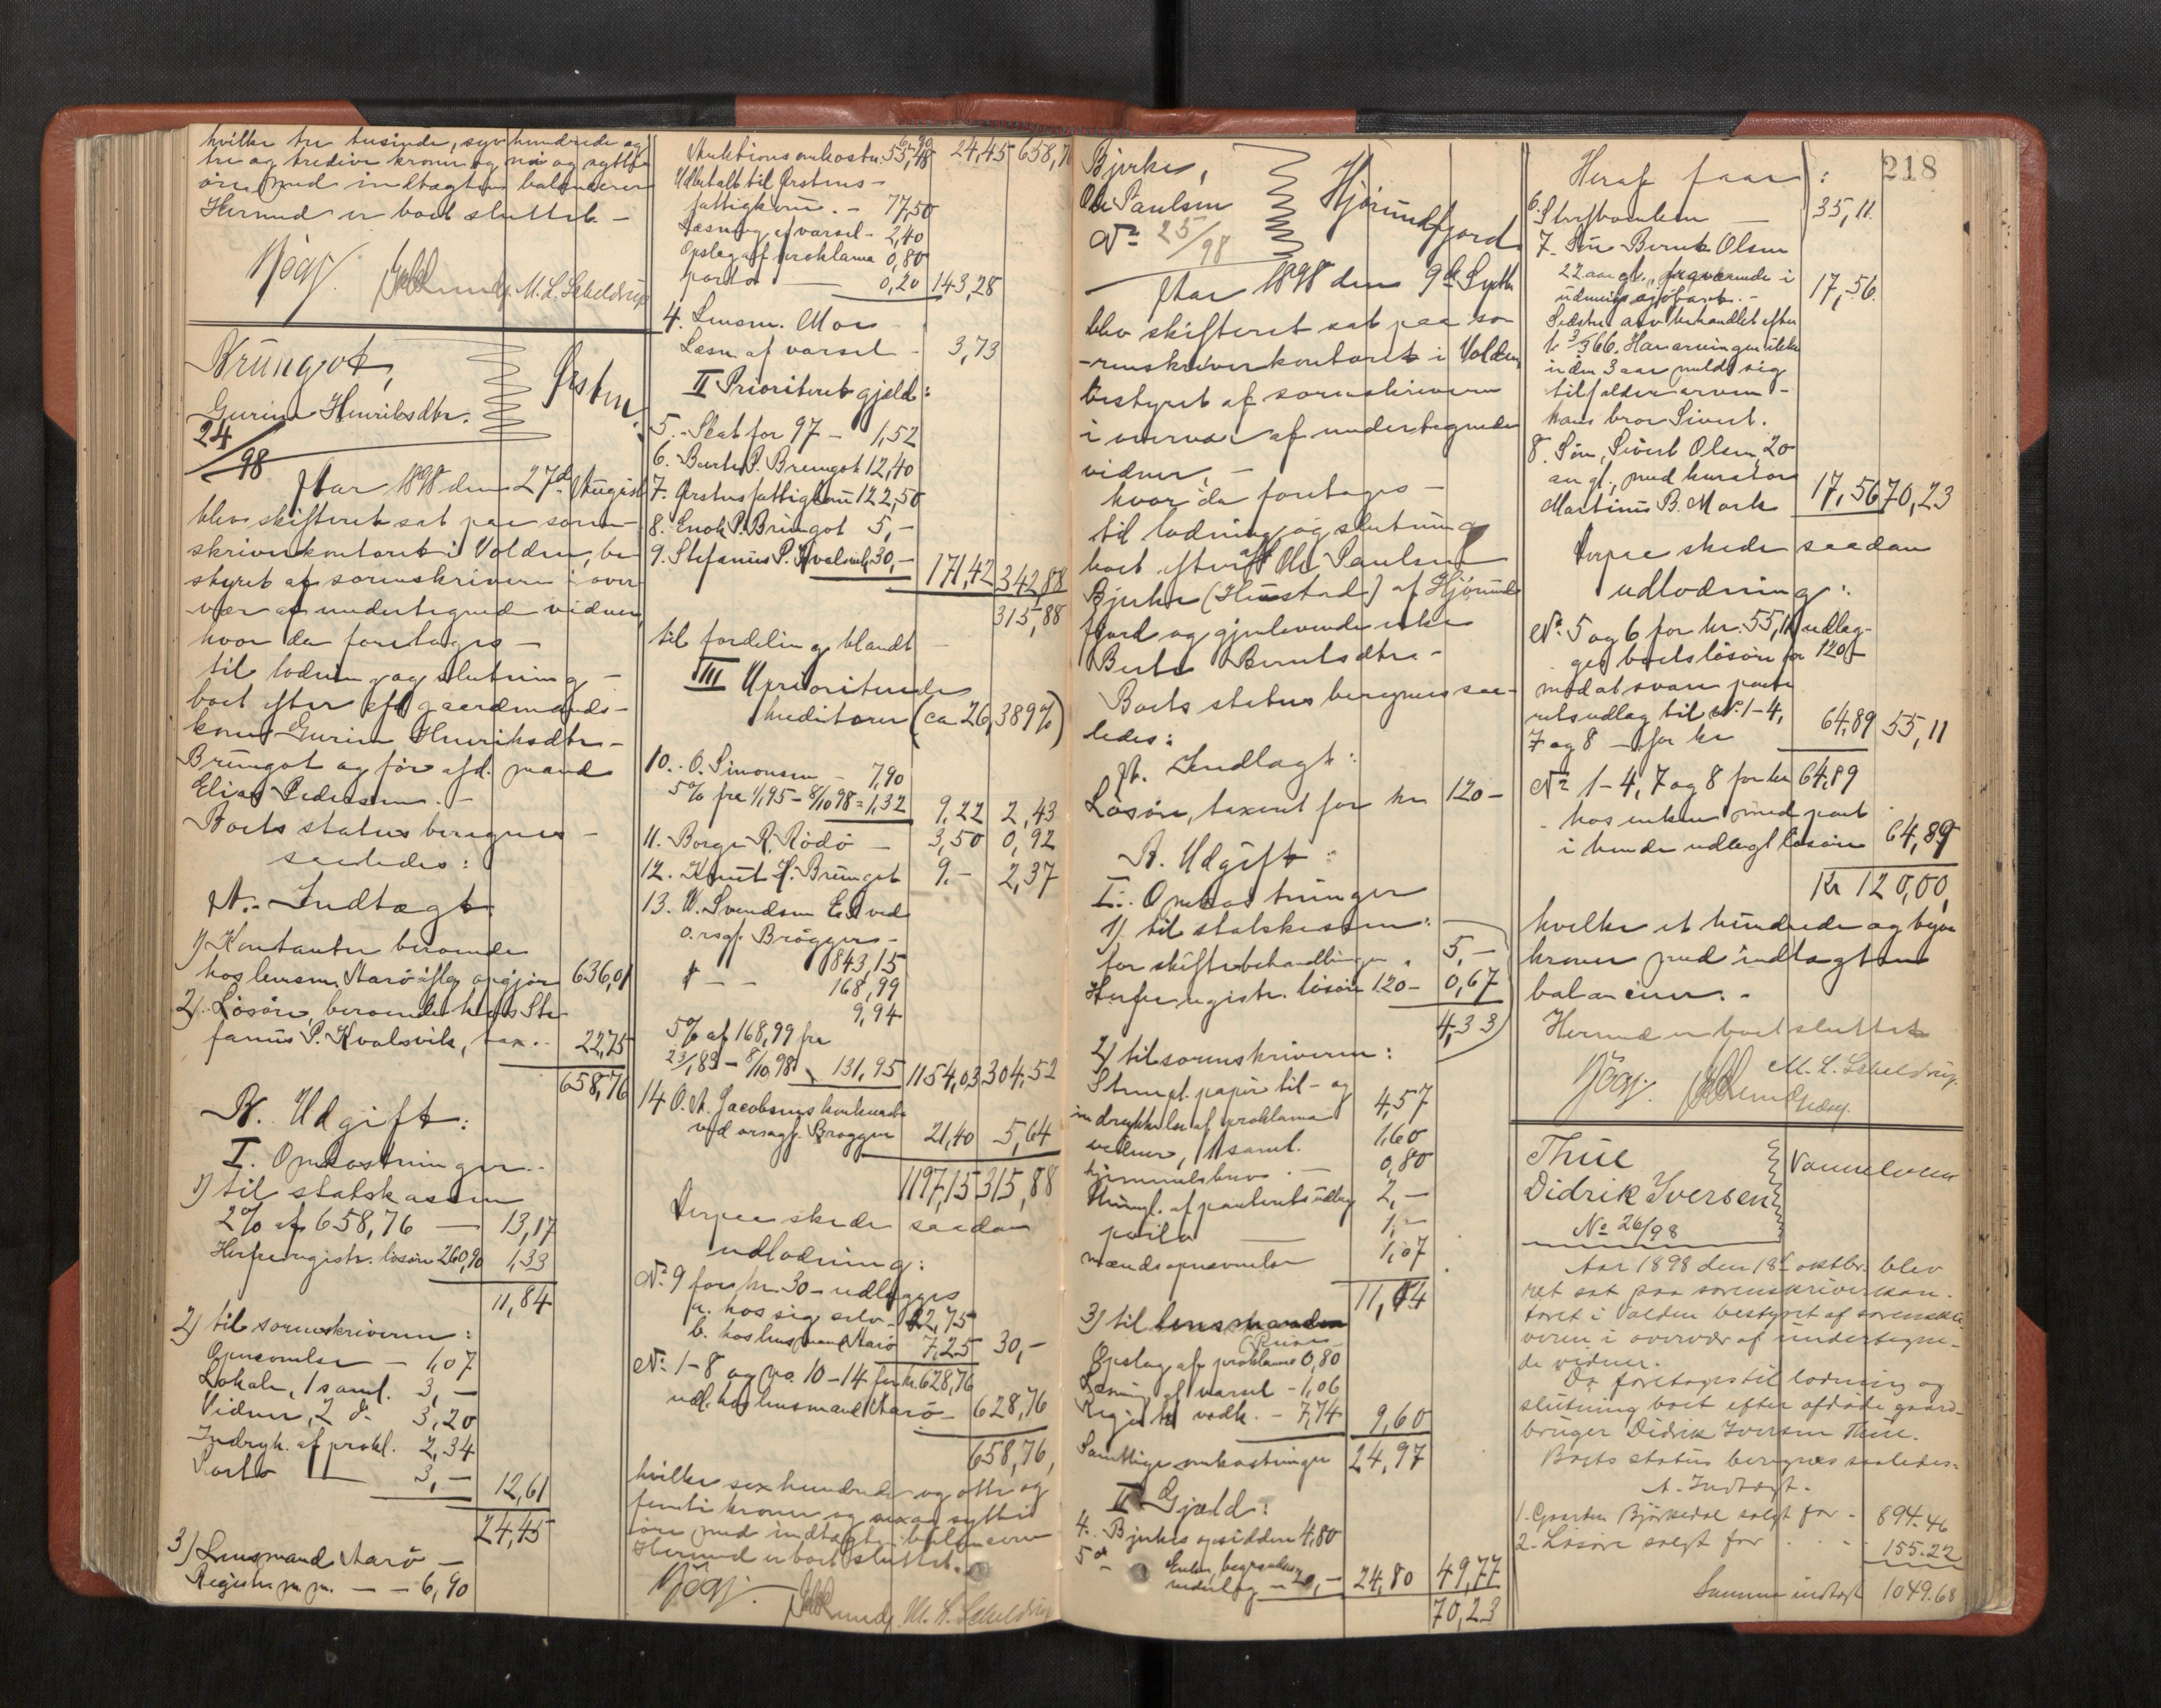 hvilke tre tusinde, syv hundrede og
tre og tredive kroner og ni og sytti
øre med indtægten balancerer
Hermed er boet sluttet. —
M. L. Scheldrup
Brungot,
Gurine Henriksdtr.
Ørsten.
24/98
Aar 1898 den 27de August
blev skifteret sat paa soren-
skriverkontoret i Volden, be
styret af sorenskriveren i over
vær af undertegned vidner,
hvor da foretages —
til lodning og slutning —
boet efter afd. gaardmands-
kone Gurine Henriksdtr.
Brungot og før afd. mand
Elias Pedersen. —
Boets status beregnes —
saaledes:
A. Indtægt
1) Kontanter beroende
hos lensm. Aarö iflg. opgjør 636,01
2) Løsøre, beroende hos Ste-
fanus P. Kvalsvik, tax. - 22,75
658,76
B. Udgift:
I. Omkostninger.
1) til statskassen
2% af 658,76 — 13,17
Herfra registr. løsøre 260,90 1,33
11,84
2) til sorenskriveren:
Opnævnelse — 1,07
Lokale, 1 saml. 3,—
Vidner, 2 d. 3,20
Indryk. af prokl. 2,34
Porto — 3,— 12,61
24,45
3) Lensmand Aarö —
Registr. m.m. — - 6,90
Auktionsomkostn. 55,48 24,45 658,76
Udbetalt til Ørstens —
fattigkom. - 77,50
Læsning af varsel - 2,40
Opslag af proklama 0,80
porto — 0,20 143,28
4. Lensm. Moe
Læsn. af varsel - 3,73
II Prioriteret gjeld:
5. Skat for 97 - 1,52
6. Berte P. Brungot 12,40
7. Ørstens fattigkom 122,50
8. Enok P. Brungot 5,—
9. Stefanus P. Kvalsvik 30,— 171,42 342,88
315,88
til fordeling blandt —
III Uprioriterede
kreditorer (ca 26,389%)
10. O. Simonsen - 7,90
5% fra 1/1 95 - 8/10 98 = 1,32 9,22 2,43
11. Borge R. Rödö — 3,50 0,92
12. Knut H. Brungot 9.- 2,37
13. W. Svendsen Eft ved
o.rsagf. Bröggers -
843,15
168,99
9,94
5% af 168,99 fra
23/1 83 - 8/10 98 131,95 1154,03 304,52
14 O. A. Jacobsens konkursbo
ved orsagf. Brogger 21,40 5,64
1197,15 315,88
Derpaa skede saadan
udlodning:
No 9 for kr. 30 - udlægges
a. hos sig selv - 22,75
b. hos lensmand Aarö 7,25 30,—
No 1-8 og no. 10-14 for kr. 628,76
udl. hos lensmand Aarö - 628,76
658,76,
hvilke sex hundrede og otte og
femti kroner og sex og sytti
øre med indtægten balancerer
Hermed er boet sluttet.
M. L. Scheldrup
218
Bjerke,
Ole Paulsen
Hjørundfjord
No 25/98
Aar 1898 den 9de Septbr
blev skifteret sat paa so
-renskriverkontoret i Volden,
bestyret af sorenskriveren
i overvær af undertegnede
vidner, —
hvor da foretages —
til lodning og slutning
boet efter afd Ole Paulsen
Bjerke (Hustad) af Hjørund-
fjord og gjenlevende enke
Berte Berntsdtr. -
Boets status beregnes saa-
ledes:
A. Indtægt:
Løsøre, taxeret for kr 120 -
B. Udgift:
I. Omkostninger
1) til statskassen:
for skiftebehandlingen 5,—
Herfra registr. løsøre 120 - 0,67
4,33
2) til sorenskriveren:
Stempl. papir til - og
indrykkelse af proklama 4,57
vidner, 1 saml. 1,60
0,80
Thingl. af panteretsudlæg 2,—
porto 1,—
mændsopnævnelse 1,07
11,04
3) til lensmanden
Opslag af proklama 0,80
Læsning af varsel - 1,06
Registr. vedk. - 7,74 9,60
Samtlige omkostninger 24,97
II Gjæld:
4. Bjerkes opsiddere 4,80
5. Enken, begravelses
udlæg - 20,— 24,80 49,77
70,23
Heraf faar:
6. Stervboenken — 35,11.
7. Søn Bernt Olsen
22 aar gl., fraværende i
udenrigs sjøfart. - 17,56.
inden 3 aar meldt sig
tilfalder arven -
hans bror Sivert.
8. Søn, Sivert Olsen, 20
aar gl., med kurator
Martinus B. Mork 17,56 70,23
Derpaa skede saadan
udlodning:
No 5 og 6 for kr. 55,11 udlæg-
ges boets løsøre for 120 -
mod at svare pante
retsudlæg til No. 1-4,
7 og 8 - for kr 64,89 55,11
No 1-4, 7 og 8 for kr 64,89
hos enken med pant
i hende udlagt løsøre 64,89
Kr 120,00,
hvilke et hundrede og tyve
kroner med indtægten
balancerer. -
Hermed er boet sluttet
M. L. Scheldrup.
Thue
Didrik Iversen
Vannelven
No 26/98
Aar 1898 den 18de oktbr. blev
ret sat paa sorenskriverkon-
toret i Volden bestyret af sorenskri
veren i overvær af undertegne-
de vidner.
Da foretages til lodning og
slutning boet efter afdøde gaard-
bruger Didrik Iversen Thue.
Boets status beregnes saaledes:
A. Indtægt.
1. Gaarden Bjørkedal solgt for - 894.46
2. Løsøre solgt for . . - 155.22
Summa indtægt 1049.68